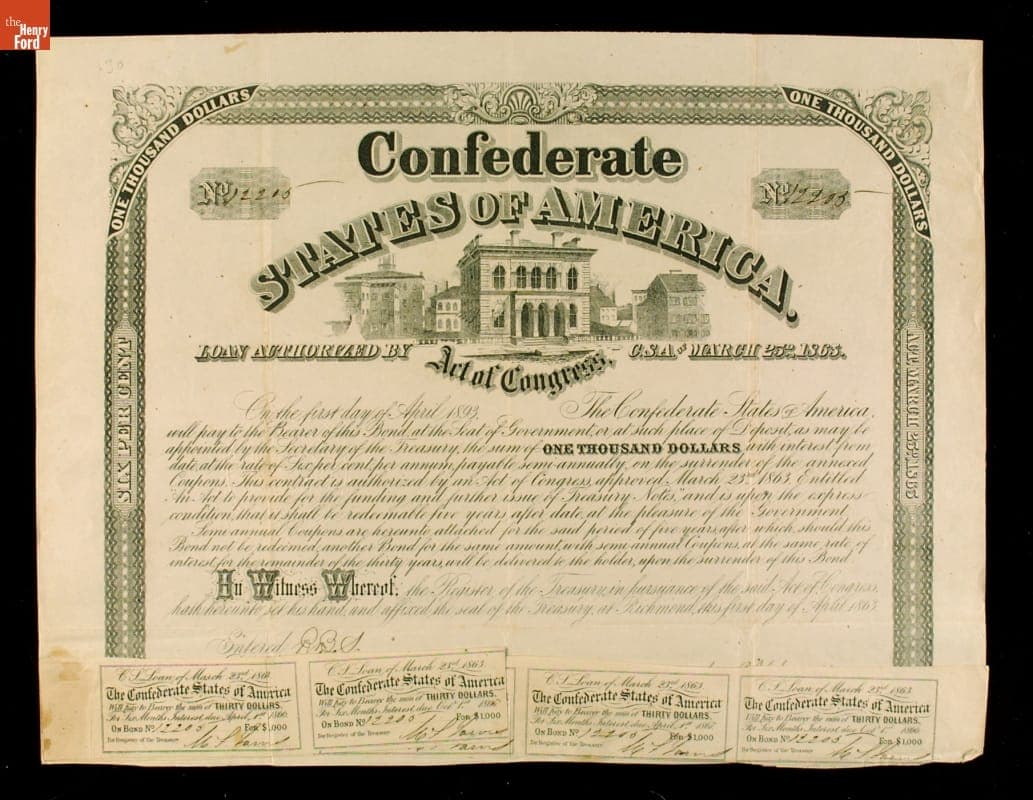 the
Henry
Ford
ONE THOUSAND DOLLARS
ONE THOUSAND DOLLARS
Confederate
No 12205
No 12205
STATES OF AMERICA.
LOAN AUTHORIZED BY Act of Congress, C.S.A. OF MARCH 23RD 1863.
SIX PER CENT
ACT MARCH 23RD, 1863
On the first day of April 1893, The Confederate States of America,
will pay to the Bearer of this Bond, at the Seat of Government, or at such place of Deposit, as may be
appointed by the Secretary of the Treasury, the sum of ONE THOUSAND DOLLARS with interest from
date, at the rate of Six per cent, per annum, payable semi-annually, on the surrender of the annexed
Coupons. This contract is authorized by an Act of Congress, approved March 23rd 1863, Entitled
"An Act to provide for the funding and further issue of Treasury Notes," and is upon the express
condition, that it shall be redeemable five years after date, at the pleasure of the Government.
Semi-annual Coupons are hereunto attached for the said period of five years, after which, should this
Bond not be redeemed, another Bond for the same amount, with semi-annual Coupons, at the same rate of
interest for the remainder of the thirty years, will be delivered to the holder, upon the surrender of this Bond.
In Witness Whereof, the Register of the Treasury, in pursuance of the said Act of Congress,
hath hereunto set his hand, and affixed the seal of the Treasury, at Richmond, this first day of April 1863.
Entered R.B.S.
C.S. Loan of March 23rd 1863.
The Confederate States of America
Will pay to Bearer the sum of THIRTY DOLLARS.
For Six Months Interest due April, 1st 1866.
ON BOND No 12205 For $1,000
For Register of the Treasury
C.S. Loan of March 23rd 1863.
The Confederate States of America
Will pay to Bearer the sum of THIRTY DOLLARS.
For Six Months Interest due Octr 1st 1866.
ON BOND No 12205 For $1,000
For Register of the Treasury
C.S. Loan of March 23rd 1863.
The Confederate States of America
Will pay to Bearer the sum of THIRTY DOLLARS.
For Six Months Interest due April 1st
ON BOND No 12205 For $1,000
For Register of the Treasury
C.S. Loan of March 23rd 1863.
The Confederate States of America
Will pay to Bearer the sum of THIRTY DOLLARS.
For Six Months Interest due Octr 1st
ON BOND No 12205 For $1,000
For Register of the Treasury